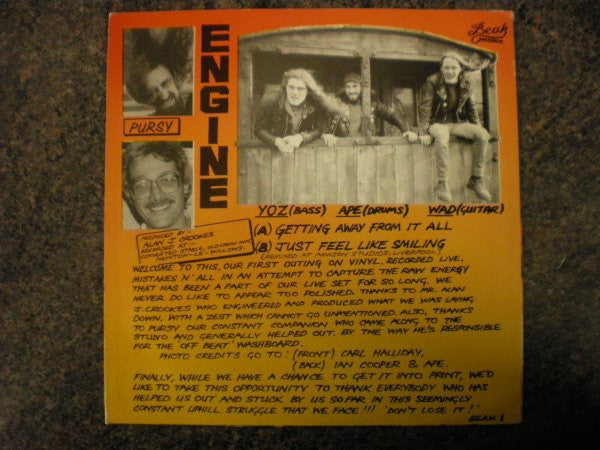 Beak
RECORDS
ENGINE
PURSY
YOZ (BASS) APE (DRUMS) WAD (GUITAR)
(A) GETTING AWAY FROM IT ALL
(B) JUST FEEL LIKE SMILING
(REMIXED AT AMAZON STUDIOS, LIVERPOOL)
PRODUCED BY:-
ALAN J. CROOKES
RECORDED AT:-
CONVERTED STABLE, OLD CROW INN,
NEWTON-LE-WILLOWS.
WELCOME TO THIS, OUR FIRST OUTING ON VINYL. RECORDED LIVE,
MISTAKES 'N' ALL IN AN ATTEMPT TO CAPTURE THE RAW ENERGY
THAT HAS BEEN A PART OF OUR LIVE SET FOR SO LONG, WE
NEVER DO LIKE TO APPEAR TOO POLISHED. THANKS TO MR. ALAN
J. CROOKES WHO ENGINEERED AND PRODUCED WHAT WE WAS LAYING
DOWN, WITH A ZEST WHICH CANNOT GO UNMENTIONED. ALSO, THANKS
TO PURSY OUR CONSTANT COMPANION WHO CAME ALONG TO THE
STUDIO AND GENERALLY HELPED OUT. BY THE WAY HE'S RESPONSIBLE
FOR THE 'OFF BEAT' WASHBOARD.
PHOTO CREDITS GO TO: (FRONT) CARL HALLIDAY.
(BACK) IAN COOPER & APE.
FINALLY, WHILE WE HAVE A CHANCE TO GET IT INTO PRINT, WE'D
LIKE TO TAKE THIS OPPORTUNITY TO THANK EVERYBODY WHO HAS
HELPED US OUT AND STUCK BY US SO FAR IN THIS SEEMINGLY
CONSTANT UPHILL STRUGGLE THAT WE FACE!!! 'DON'T LOSE IT!'
BEAK 1